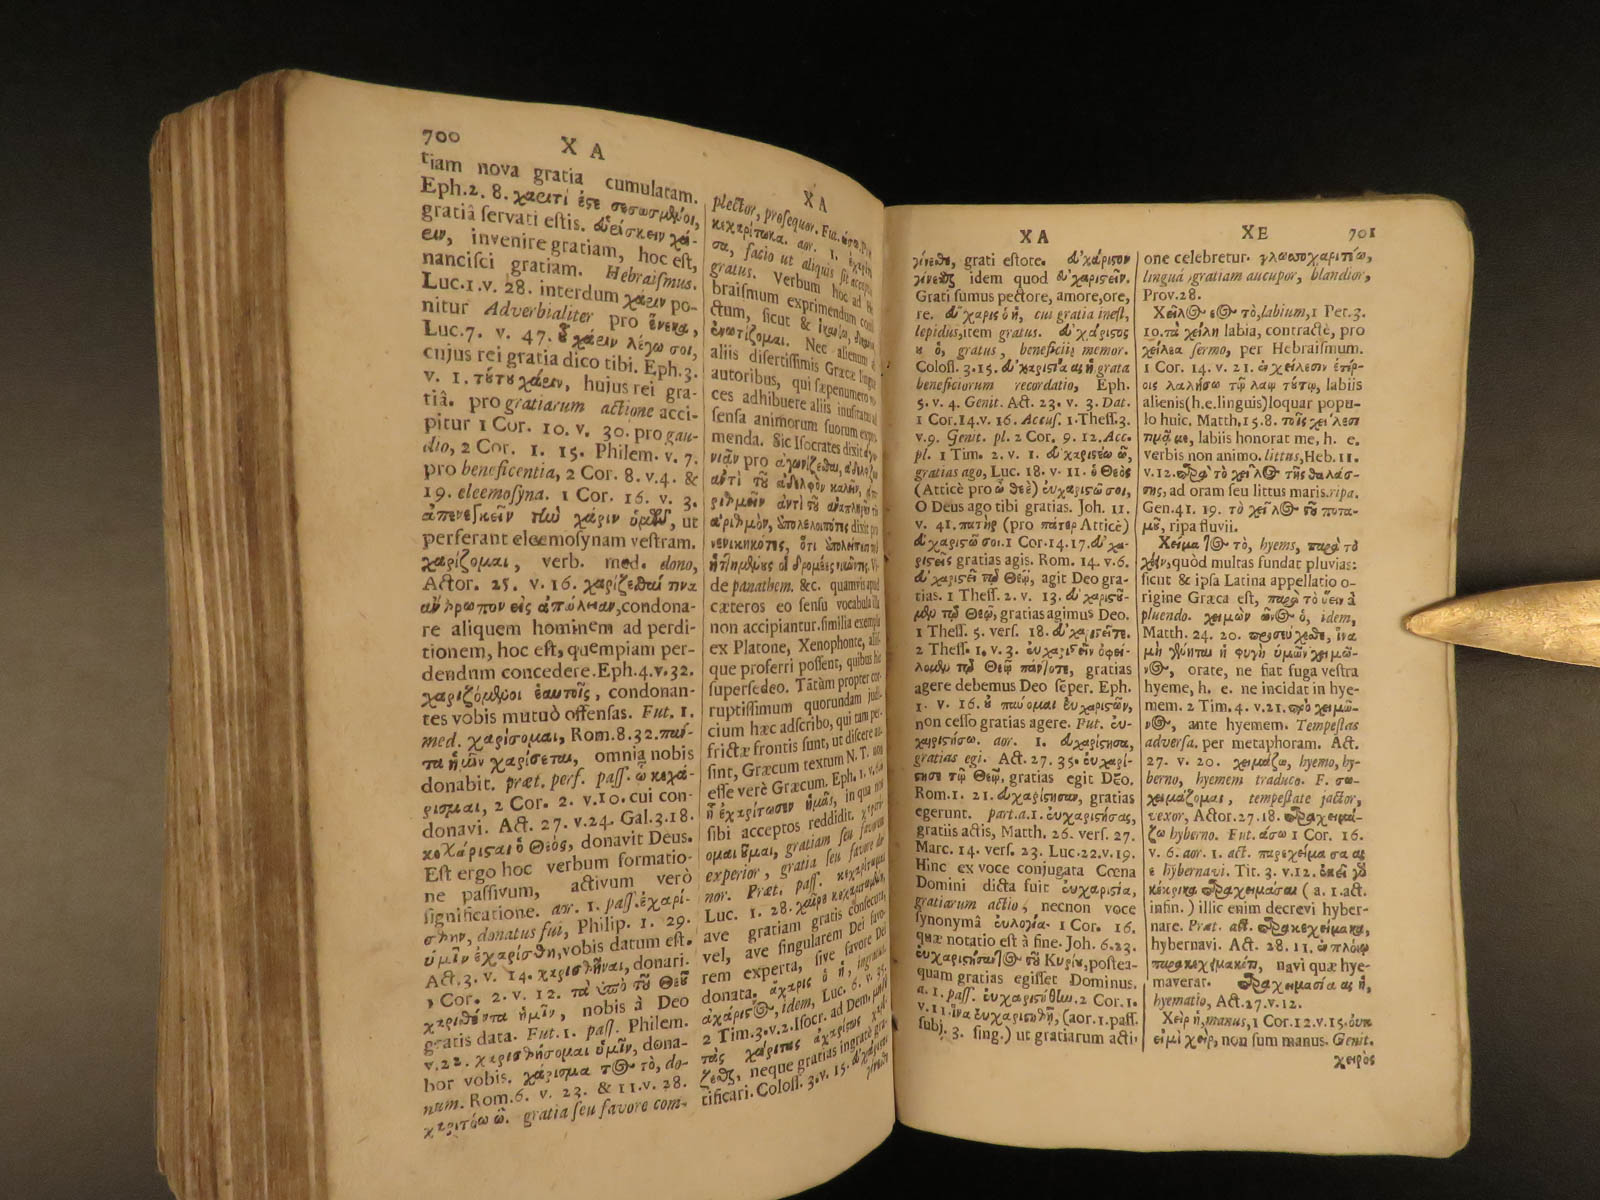 700
X A
tiam nova gratia cumulatam.
Eph.2. 8. χάριτί ἐστε σεσωσμένοι,
gratiâ servati estis. εὑρίσκειν χά-
ριν, invenire gratiam, hoc est,
nancisci gratiam. Hebraismus.
Luc.1.v. 28. interdum χάριν po-
nitur Adverbialiter pro ἕνεκα,
Luc.7. v. 47. οὗ χάριν λέγω σοι,
cujus rei gratia dico tibi. Eph.3.
v. 1. τούτου χάριν, hujus rei gra-
tiâ. pro gratiarum actione acci-
pitur 1 Cor. 10. v. 30. pro gau-
dio, 2 Cor. 1. 15. Philem. v. 7.
pro beneficentia, 2 Cor. 8. v.4. &
19. eleemosyna. 1 Cor. 16. v. 3.
ἀπενεγκεῖν τὴν χάριν ὑμῶν, ut
perferant eleemosynam vestram.
χαρίζομαι, verb. med. dono,
Actor. 25. v. 16. χαρίζεσθαί τινα
ἄνθρωπον εἰς ἀπώλειαν, condona-
re aliquem hominem ad perdi-
tionem, hoc est, quempiam per-
dendum concedere. Eph.4.v.32.
χαριζόμενοι ἑαυτοῖς, condonan-
tes vobis mutuò offensas. Fut. 1.
med. χαρίσομαι, Rom.8.32. πάν-
τα ἡμῖν χαρίσεται, omnia nobis
donabit. præt. perf. pass. ᾧ κεχά-
ρισμαι, 2 Cor. 2. v.10. cui con-
donavi. Act. 27. v.24. Gal.3.18.
κεχάρισται ὁ Θεὸς, donavit Deus.
Est ergo hoc verbum formatio-
ne passivum, activum verò
significatione. aor. 1. pass. ἐχαρί-
σθην, donatus fui, Philip. 1. 29.
ὑμῖν ἐχαρίσθη, vobis datum est.
Act.3. v. 14. χαρισθῆναι, donari.
1 Cor. 2. v. 12. τὰ ὑπὸ τοῦ Θεοῦ
χαρισθέντα ἡμῖν, nobis à Deo
gratis data. Fut. 1. pass. Philem.
v.22. χαρισθήσομαι ὑμῖν, dona-
bor vobis. χάρισμα τος τὸ, do-
num. Rom.6. v. 23. & 11.v. 28.
χαριτόω ῶ. gratia seu favore com-
X A
plector, prosequor. Fut. ώσω, Præt.
κεχαρίτωκα. aor. 1. ἐχαρίτω-
σα, facio ut aliquis sit acceptus
gratus. Verbum hoc ad
braismum exprimendum
ctum, sicut &
ἐνωτίζομαι. Nec alienum
aliis disertissimis Græcæ linguæ
autoribus, qui sæpenumero vo-
ces adhibuere aliis inusitatas ad
sensa animorum suorum expri-
menda. Sic Isocrates dixit
pro ἀγωνίζεσθαι, ἀδελφίζειν
ἀντὶ τοῦ ἀδελφὸν καλεῖν,
ἀντὶ τοῦ ἀναπληροῦν τὸν
ἀριθμὸν, ὑπολελοιπότας dixit pro
νενικηκότας, ὅτι ὑπολείπεσθαι
Vi-
de panathem. &c. quamvis apud
cæteros eo sensu vocabula illa
non accipiantur. similia exempla
ex Platone, Xenophonte, aliis-
que proferri possent, quibus hîc
supersedeo. Tãtùm propter cor-
ruptissimum quorundam judi-
cium hæc adscribo, qui tam per-
frictæ frontis sunt, ut dicere au-
sint, Græcum textum N. T. non
esse verè Græcum. Eph. 1. v. 6. ἐν
ᾗ ἐχαρίτωσεν ἡμᾶς, in qua nos
sibi acceptos reddidit. χαριτό-
ομαι οῦμαι, gratiam seu favorem
experior, gratia seu favore do-
nor. Præt. pass. κεχαρίτωμαι
Luc. 1. 28. χαῖρε κεχαριτωμένη,
ave gratiam gratis consecuta,
vel, ave singularem Dei favo-
rem experta, sive favore Dei
donata. ἄχαρις ὁ ἡ, ingratus.
ἀχάριστος, idem, Luc. 6. v. 35.
2 Tim.3.v.2. Isocr. ad Dem.
τὰς χάριτας ἀχαρίστως χαρί-
ζεσθε, neque gratias ingratè gra-
tificari. Coloss. 3.v. 15. εὐχάριστοι
γίνεσθε
X A
γίνεσθε, grati estote. εὐχάριστον
γίνεσθαι idem quod εὐχαριστεῖν.
Grati sumus pectore, amore, ore,
re. εὔχαρις ὁ ἡ, cui gratia inest,
lepidus, item gratus. εὐχάριστος
ου ὁ, gratus, beneficii memor.
Coloss. 3.15. εὐχαριστία ας ἡ grata
beneficiorum recordatio, Eph.
5. v. 4. Genit. Act. 23. v. 3. Dat.
1 Cor.14.v. 16. Accus. 1.Thess.3.
v.9. Genit. pl. 2 Cor. 9. 12. Acc.
pl. 1 Tim. 2. v. 1. εὐχαριστέω ῶ,
gratias ago, Luc. 18. v. 11. ὁ Θεὸς
(Atticè pro ὦ θεὲ) εὐχαριστῶ σοι,
O Deus ago tibi gratias. Joh. 11.
v. 41. πατὴρ (pro πάτερ Atticè)
εὐχαριστῶ σοι. 1 Cor.14.17. εὐχα-
ριστεῖς gratias agis. Rom. 14. v.6.
εὐχαριστεῖ τῷ Θεῷ, agit Deo gra-
tias. 1 Thess. 2. v. 13. εὐχαριστοῦ-
μεν τῷ Θεῷ, gratias agimus Deo.
1 Thess. 5. vers. 18. εὐχαριστεῖτε.
2 Thess. 1. v. 3. εὐχαριστεῖν ὀφεί-
λομεν τῷ Θεῷ πάντοτε, gratias
agere debemus Deo sẽper. Eph.
1. v. 16. οὐ παύομαι εὐχαριστῶν,
non cesso gratias agere. Fut. εὐ-
χαριστήσω. aor. 1. εὐχαρίστησα,
gratias egi. Act. 27. 35. εὐχαρί-
στησε τῷ Θεῷ, gratias egit Deo.
Rom.1. 21. εὐχαρίστησαν, gratias
egerunt. part.a.1. εὐχαριστήσας,
gratiis actis, Matth. 26. vers. 27.
Marc. 14. vers. 23. Luc.22.v.19.
Hinc ex voce conjugata Cœna
Domini dicta fuit εὐχαριστία,
gratiarum actio, necnon voce
synonymâ εὐλογία. 1 Cor. 16.
quæ notatio est à fine. Joh. 6.23.
εὐχαριστήσαντος τοῦ Κυρίου, postea-
quam gratias egisset Dominus.
a. 1. pass. εὐχαριστήθην. 2 Cor. 1.
v. 11. ἵνα εὐχαριστηθῇ, (aor. 1. pass.
subj. 3. sing.) ut gratiarum acti-
X E
701
one celebretur. γλωσσοχαριτόω,
linguâ gratiam aucupor, blandior,
Prov.28.
Χεῖλος εος τὸ, labium, 1 Pet. 3.
10. τὰ χείλη labia, contractè, pro
χείλεα sermo, per Hebraismum.
1 Cor. 14. v. 21. ἐν χείλεσιν ἑτέρ-
οις λαλήσω τῷ λαῷ τούτῳ, labiis
alienis (h.e. linguis) loquar popu-
lo huic. Matth. 15.8. τοῖς χείλεσί
τιμᾷ με, labiis honorat me, h. e.
verbis non animo. littus, Heb. 11.
v.12. παρὰ τὸ χεῖλος τῆς θαλάσ-
σης, ad oram seu littus maris. ripa.
Gen.41. 19. τὸ χεῖλος τοῦ ποτα-
μοῦ, ripa fluvii.
Χεῖμα τος τὸ, hyems, παρὰ τὸ
χέειν, quòd multas fundat pluvias:
sicut & ipsa Latina appellatio o-
rigine Græca est, παρὰ τὸ ὕειν à
pluendo. χειμὼν ῶνος ὁ, idem,
Matth. 24. 20. προσεύχεσθε, ἵνα
μὴ γένηται ἡ φυγὴ ὑμῶν χειμῶ-
νος, orate, ne fiat fuga vestra
hyeme, h. e. ne incidat in hye-
mem. 2 Tim. 4. v.21. πρὸ χειμῶ-
νος, ante hyemem. Tempestas
adversa. per metaphoram. Act.
27. v. 20. χειμάζω, hyemo, hy-
berno, hyemem traduco. F. σω.
χειμάζομαι, tempestate jactor,
vexor, Actor.27.18. παραχειμά-
ζω hyberno. Fut. άσω 1 Cor. 16.
v. 6. aor. 1. act. παρεχείμασα ας
ε hybernavi. Tit. 3. v.12. ἐκεῖ γὰρ
κέκρικα παραχειμάσαι ( a. 1. act.
infin. ) illic enim decrevi hyber-
nare. Præt. act. παρακεχείμακα,
hybernavi. Act. 28. 11. ἐν πλοίῳ
παρακεχειμακότι, navi quæ hye-
maverat. Παραχειμασία ας ἡ,
hyematio, Act.27.v.12.
Χεὶρ ἡ, manus, 1 Cor.12.v.15. οὐκ
εἰμὶ χεὶρ, non sum manus. Genit.
χειρὸς